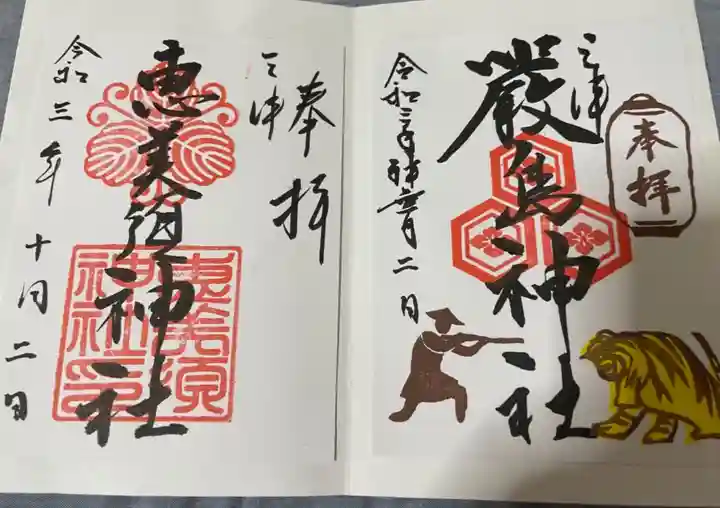 奉拝
三津
厳島神社
令和三年神無月二日
奉拝
三津
恵美須神社
恵美須神社印
令和三年十月二日